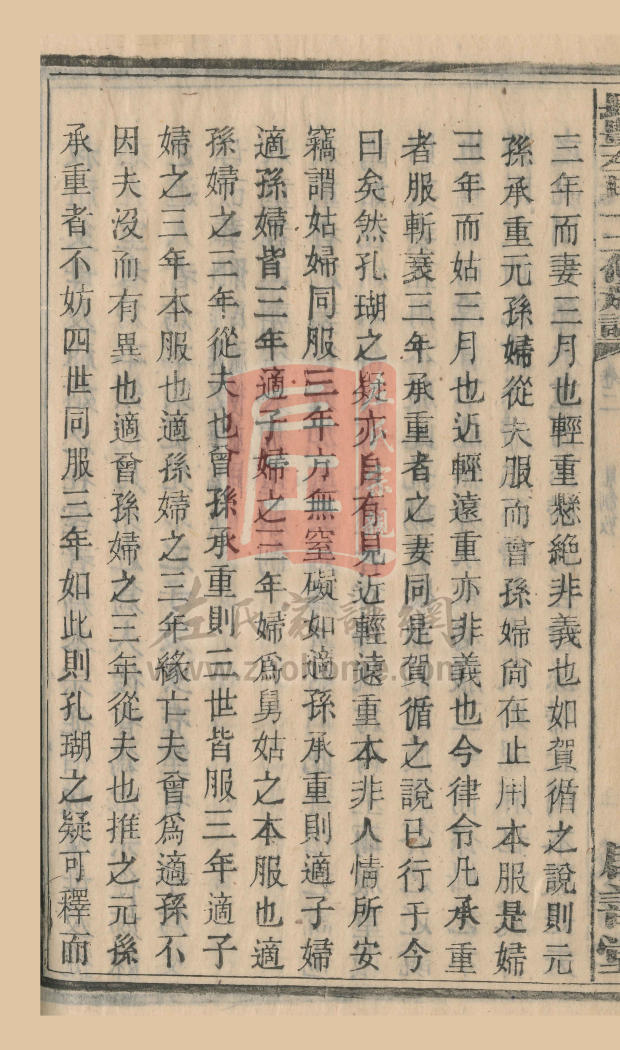 三年而妻三月也輕重懸絕非義也如賀循之說則元
孫承重元孫婦從夫服而曾孫婦尙在止用本服是婦
三年而姑三月也近輕遠重亦非義也今律令凡承重
者服斬衰三年承重者之妻同是賀循之說已行于今
日矣然孔瑚之疑亦自有見近輕遠重本非人情所安
竊謂姑婦同服三年方無窒礙如適孫承重則適子婦
適孫婦皆三年適子婦之三年婦爲舅姑之本服也適
孫婦之三年從夫也曾孫承重則三世皆服三年適子
婦之三年本服也適孫婦之三年緣亡夫曾爲適孫不
因夫沒而有異也適曾孫婦之三年從夫也推之元孫
承重者不妨四世同服三年如此則孔瑚之疑可釋而
左氏家譜網
www.zuohome.com